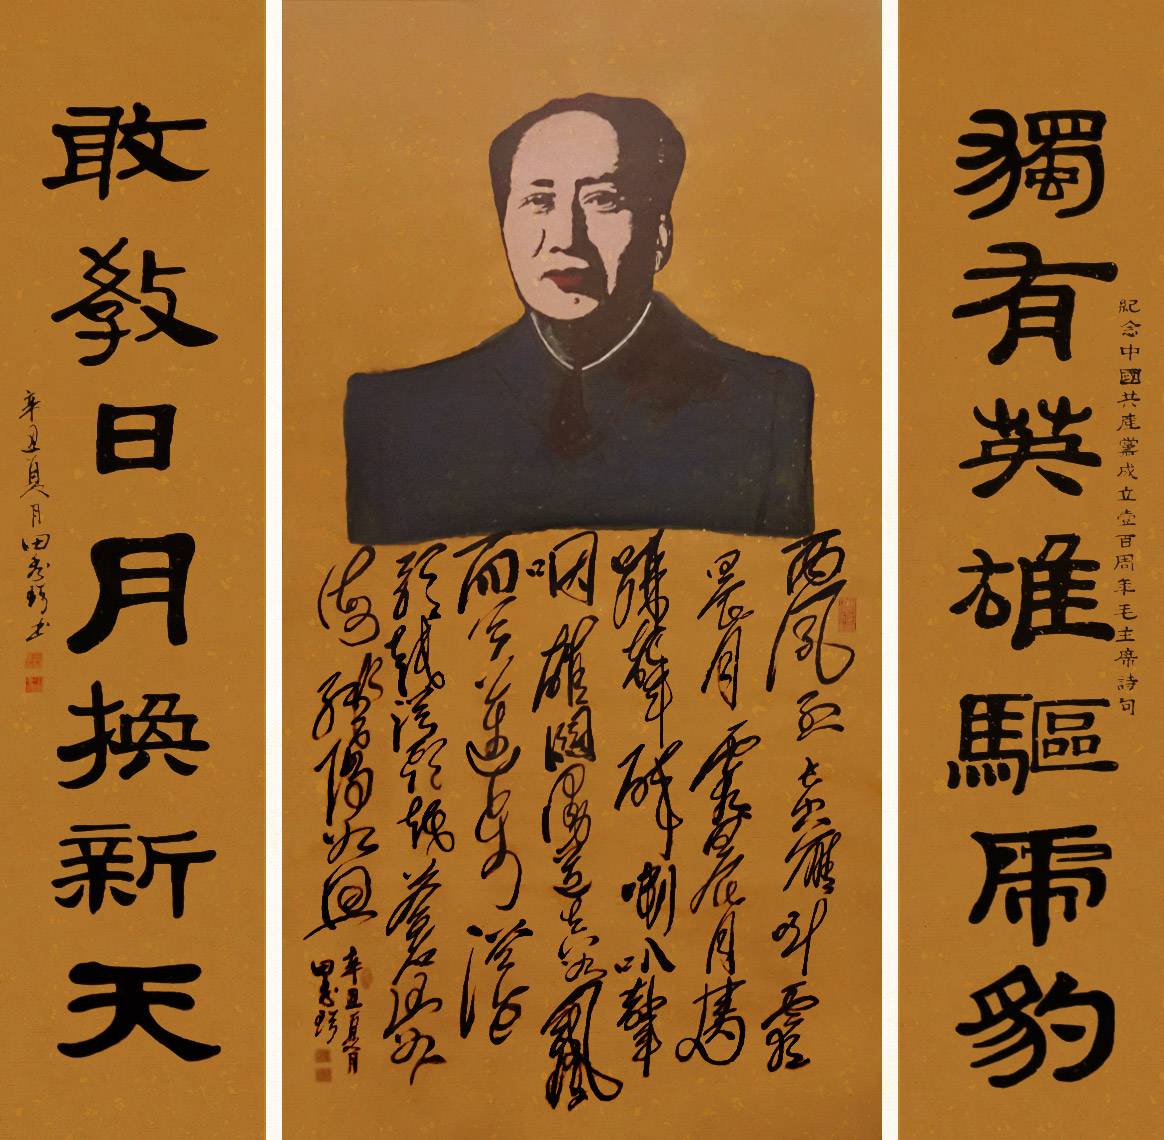 獨有英雄驅虎豹
紀念中國共產黨成立壹百周年毛主席詩句
西風烈長空雁叫霜
晨月霜晨月馬
蹄聲碎喇叭聲
咽雄關漫道真如鐵
而今邁步從
頭越從頭越蒼山如
海殘陽如血
辛丑夏月
田秀
敢教日月換新天
辛丑夏月田秀書